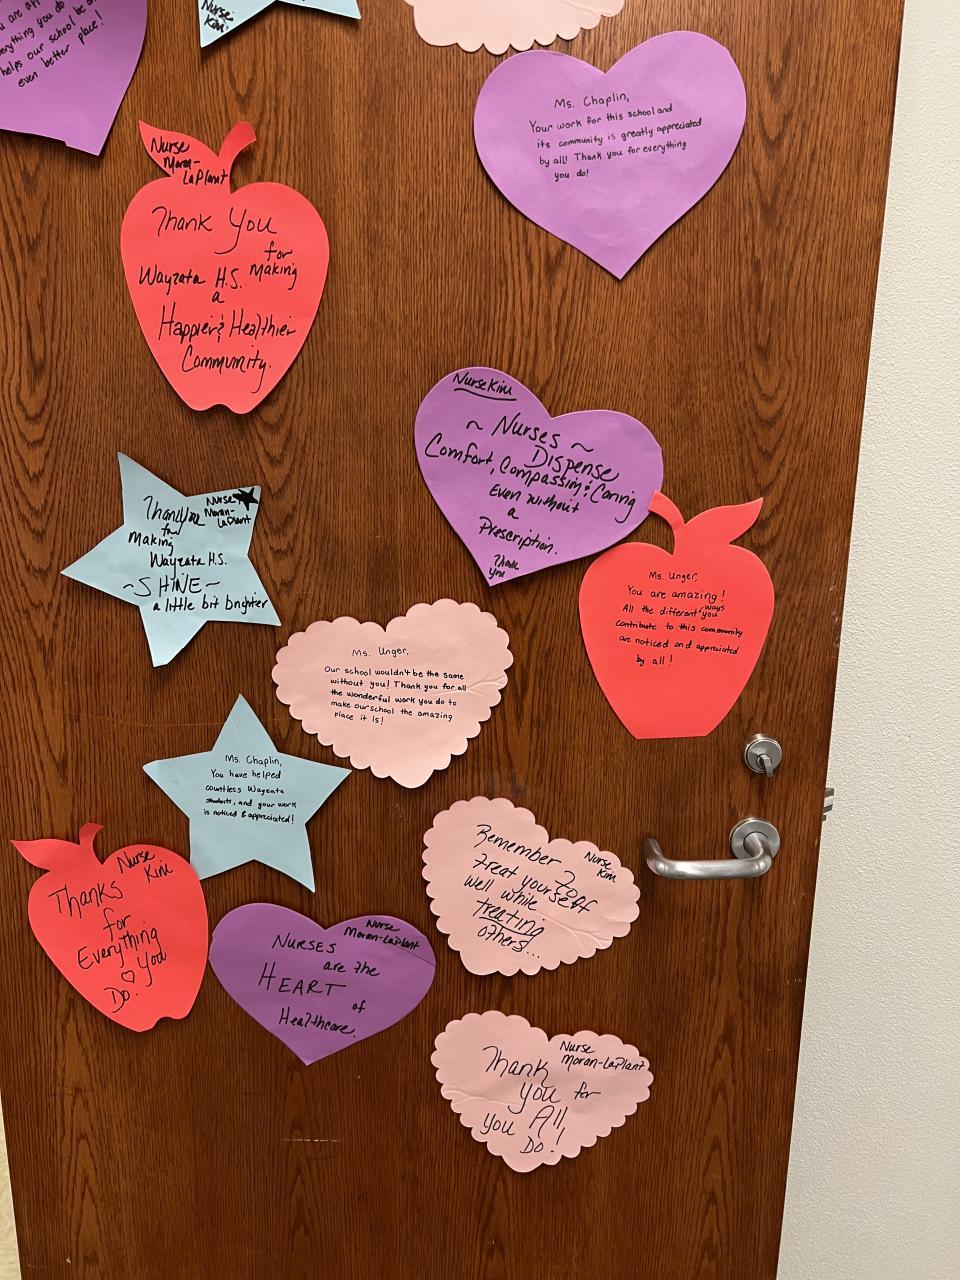 are
everything you do
helps our school be an
even better place!
Nurse
Kim
Ms. Chaplin,
Your work for this school and
its community is greatly appreciated
by all! Thank you for everything
you do!
Nurse
Moran-
LaPlant
Thank You
for
Making
Wayzata H.S.
a
Happier & Healthier
Community.
Nurse Kim
~ Nurses ~
Dispense
Comfort, Compassion & Caring
Even without
a
Prescription.
Thank
you
Nurse
Moran-
LaPlant
Thank you
for
Making
Wayzata H.S.
~SHINE~
a little bit brighter
Ms. Unger,
You are amazing!
All the different ways you
contribute to this community
are noticed and appreciated
by all!
Ms. Unger,
Our school wouldn't be the same
without you! Thank you for all
the wonderful work you do to
make our school the amazing
place it is!
Ms. Chaplin,
You have helped
countless Wayzata
students, and your work
is noticed & appreciated!
Nurse
Kim
Thanks
for
Everything
You
Do.
Nurse
Kim
Remember to
treat yourself
well while
treating
others...
Nurse
Moran-LaPlant
NURSES
are the
HEART
of
Healthcare.
Nurse
Moran-LaPlant
Thank
you for
All
you
Do!